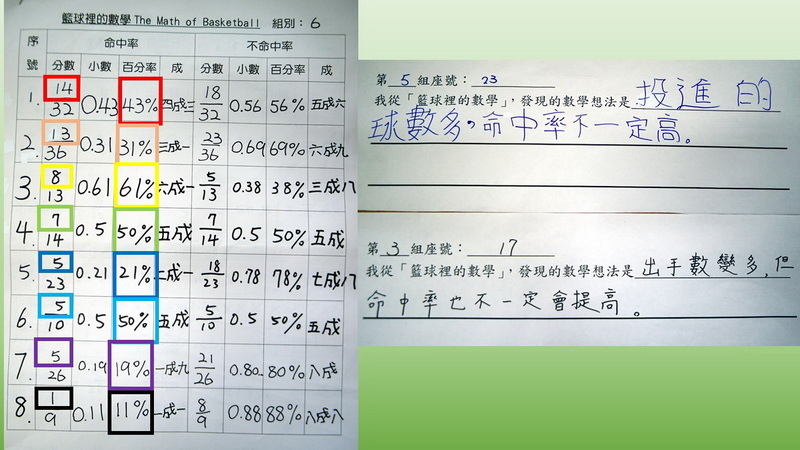 籃球裡的數學 The Math of Basketball 組別：6
序號 命中率 不命中率
分數 小數 百分率 成 分數 小數 百分率 成
1. 14/32 0.43 43% 四成三 18/32 0.56 56% 五成六
2. 13/36 0.31 31% 三成一 23/36 0.69 69% 六成九
3. 8/13 0.61 61% 六成一 5/13 0.38 38% 三成八
4. 7/14 0.5 50% 五成 7/14 0.5 50% 五成
5. 5/23 0.21 21% 二成一 18/23 0.78 78% 七成八
6. 5/10 0.5 50% 五成 5/10 0.5 50% 五成
7. 5/26 0.19 19% 一成九 21/26 0.80 80% 八成
8. 1/9 0.11 11% 一成一 8/9 0.88 88% 八成八
第 5 組座號： 23
我從「籃球裡的數學」，發現的數學想法是 投進的
球數多，命中率不一定高。
第 3 組座號： 17
我從「籃球裡的數學」，發現的數學想法是 出手數變多，但
命中率也不一定會提高。